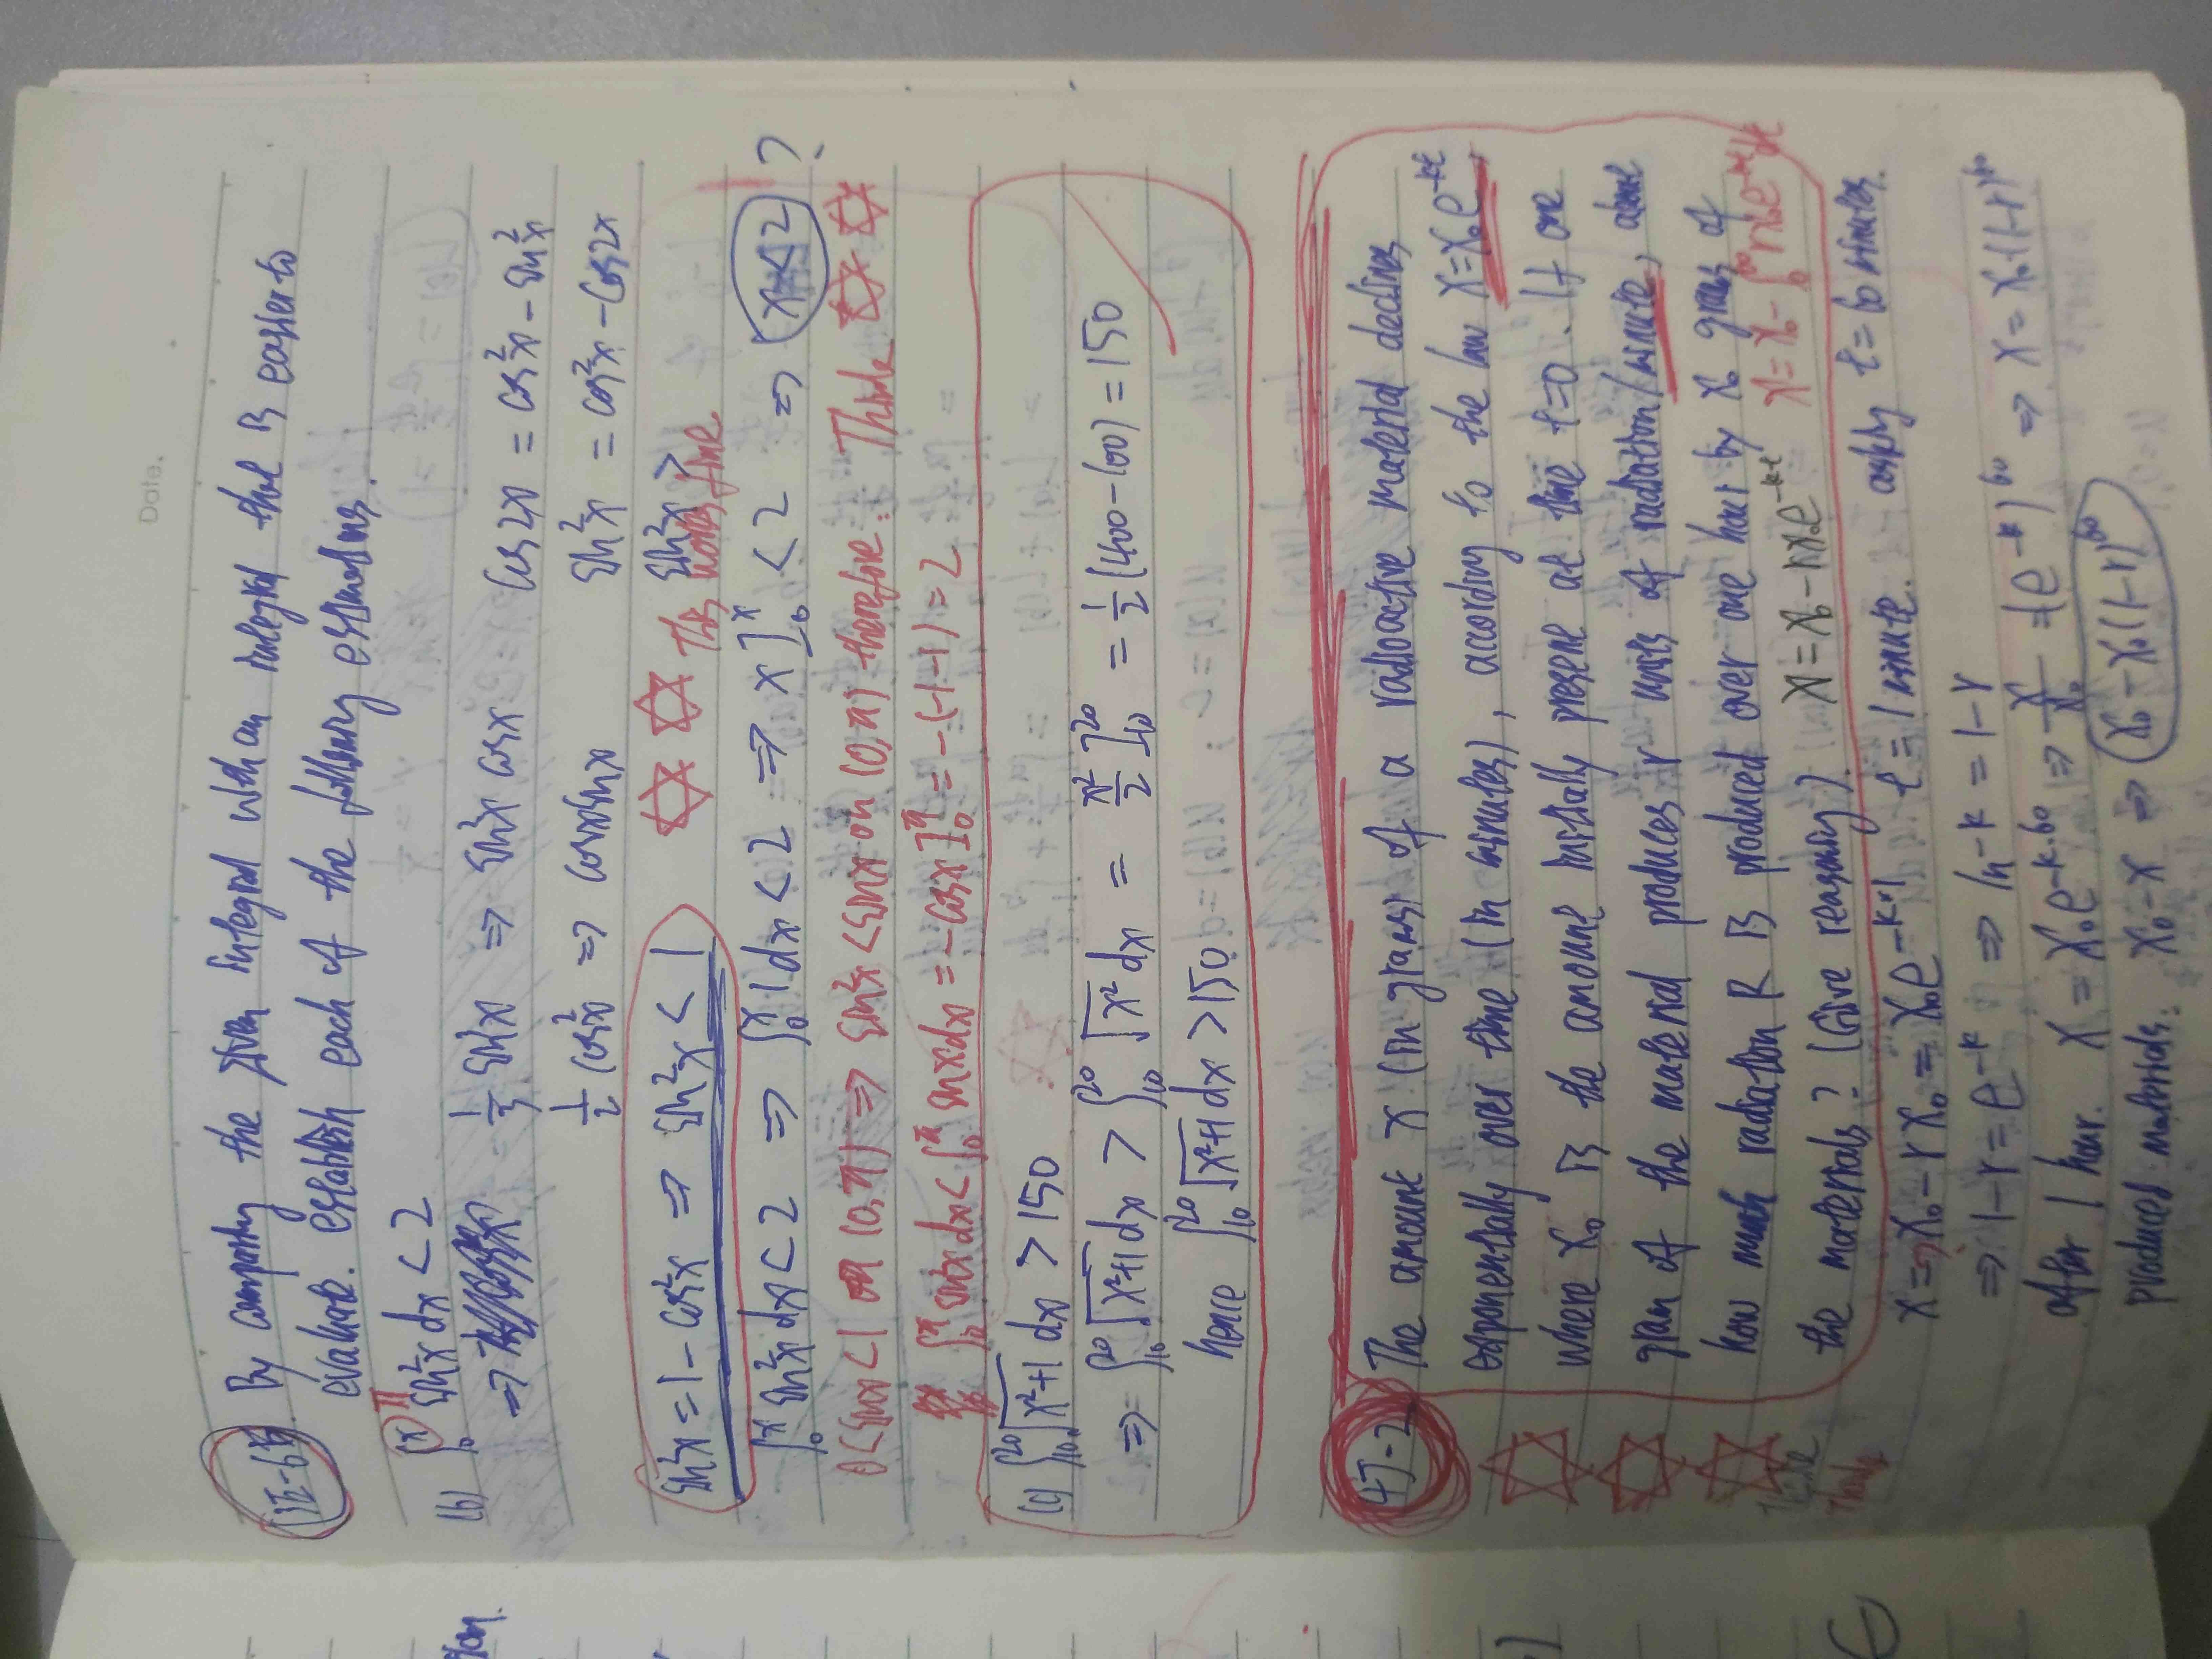 Date.
3E-6b By comparing the given integral with an integral that is easier to
evaluate. establish each of the following estimations.
(b) ∫₀^π sin²x dx < 2
⇒ 1/3 sin³x ⇒ sin²x cosx cos2x = cos²x - sin²x
1/2 (cos²x ⇒ cosxsinx sin²x = cos²x - cos2x
sin²x = 1 - cos²x ⇒ sin²x < 1 sin²x > This works fine
∫₀^x sin²x dx < 2 ⇒ ∫₀^x 1 dx < 2 ⇒ x]₀^x < 2 ⇒ x < 2 ?
0 < sinx < 1 on (0, π) ⇒ sin²x < sinx on (0, π) therefore: Think
∫₀^π sin²x dx < ∫₀^π sinx dx = -cosx]₀^π = -(-1-1) = 2
(c) ∫₁₀²⁰ √x²+1 dx > 150
⇒ ∫₁₀²⁰ √x²+1 dx > ∫₁₀²⁰ √x² dx = x²/2]₁₀²⁰ = 1/2 (400-100) = 150
hence ∫₁₀²⁰ √x²+1 dx > 150
4J-2 The amount x (in grams) of a radioactive material declines
exponentially over time (in minutes), according to the law x = x₀e^-kt
where x₀ is the amount initially present at time t=0. If one
gram of the material produces r units of radiation/minute, about
how much radiation R is produced over one hour by x₀ grams of
the materials? (Give reasoning). x = x₀ - rx₀e^-kt x = x₀ - ∫₀^60 rx₀e^-kt dt
Think
x = x₀ - rx₀ = x₀e^-k·1 t = 1 minute. apply t = 60 minutes.
⇒ 1 - r = e^-k ⇒ ln -k = 1 - r
after 1 hour. x = x₀e^-k·60 ⇒ x/x₀ = (e^-k)^60 ⇒ x = x₀(1-r)^60
produced materials: x₀ - x ⇒ x₀ - x₀(1-r)^60